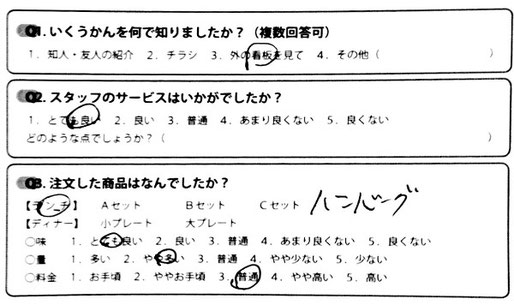 Q1. いくうかんを何で知りましたか？（複数回答可）
1. 知人・友人の紹介 2. チラシ 3. 外の看板を見て 4. その他（ ）
Q2. スタッフのサービスはいかがでしたか？
1. とても良い 2. 良い 3. 普通 4. あまり良くない 5. 良くない
どのような点でしょうか？（ ）
Q3. 注文した商品はなんでしたか？
【ランチ】 Aセット Bセット Cセット ハンバーグ
【ディナー】 小プレート 大プレート
○味 1. とても良い 2. 良い 3. 普通 4. あまり良くない 5. 良くない
○量 1. 多い 2. やや多い 3. 普通 4. やや少ない 5. 少ない
○料金 1. お手頃 2. ややお手頃 3. 普通 4. やや高い 5. 高い